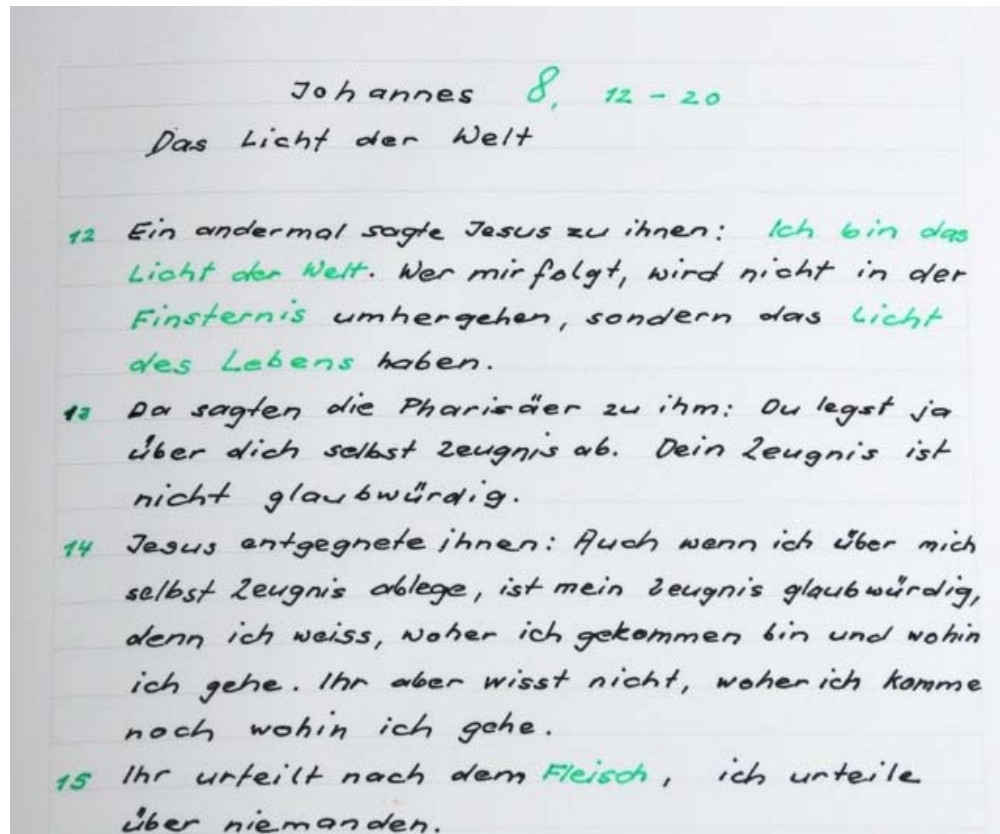 Johannes 8, 12 - 20
Das Licht der Welt
12 Ein andermal sagte Jesus zu ihnen: Ich bin das
Licht der Welt. Wer mir folgt, wird nicht in der
Finsternis umhergehen, sondern das Licht
des Lebens haben.
13 Da sagten die Pharisäer zu ihm: Du legst ja
über dich selbst Zeugnis ab. Dein Zeugnis ist
nicht glaubwürdig.
14 Jesus entgegnete ihnen: Auch wenn ich über mich
selbst Zeugnis ablege, ist mein Zeugnis glaubwürdig,
denn ich weiss, woher ich gekommen bin und wohin
ich gehe. Ihr aber wisst nicht, woher ich komme
noch wohin ich gehe.
15 Ihr urteilt nach dem Fleisch, ich urteile
über niemanden.